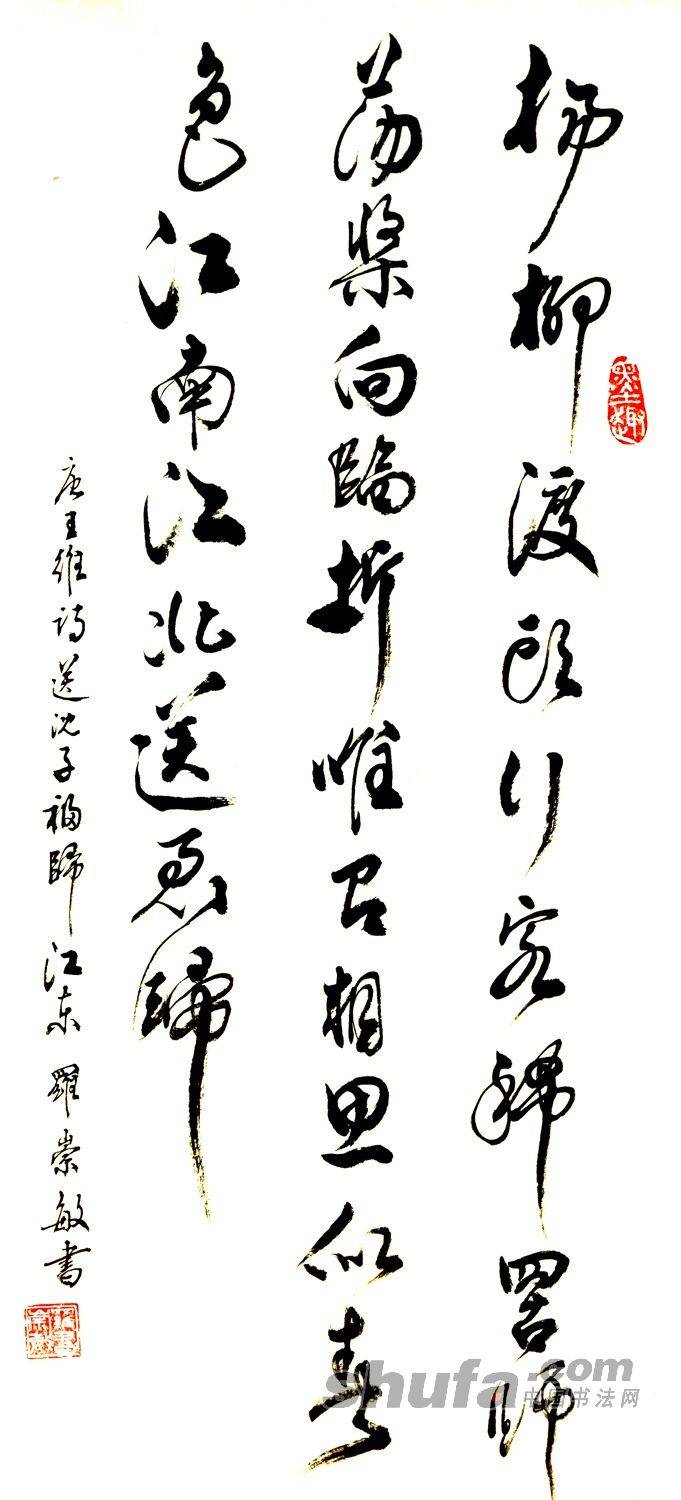 楊柳渡頭行客稀罟師
蕩槳向臨圻唯有相思似春
色江南江北送君歸
唐王維詩送沈子福歸江東 羅崇敏書
墨趣
shufa.com
中国书法网